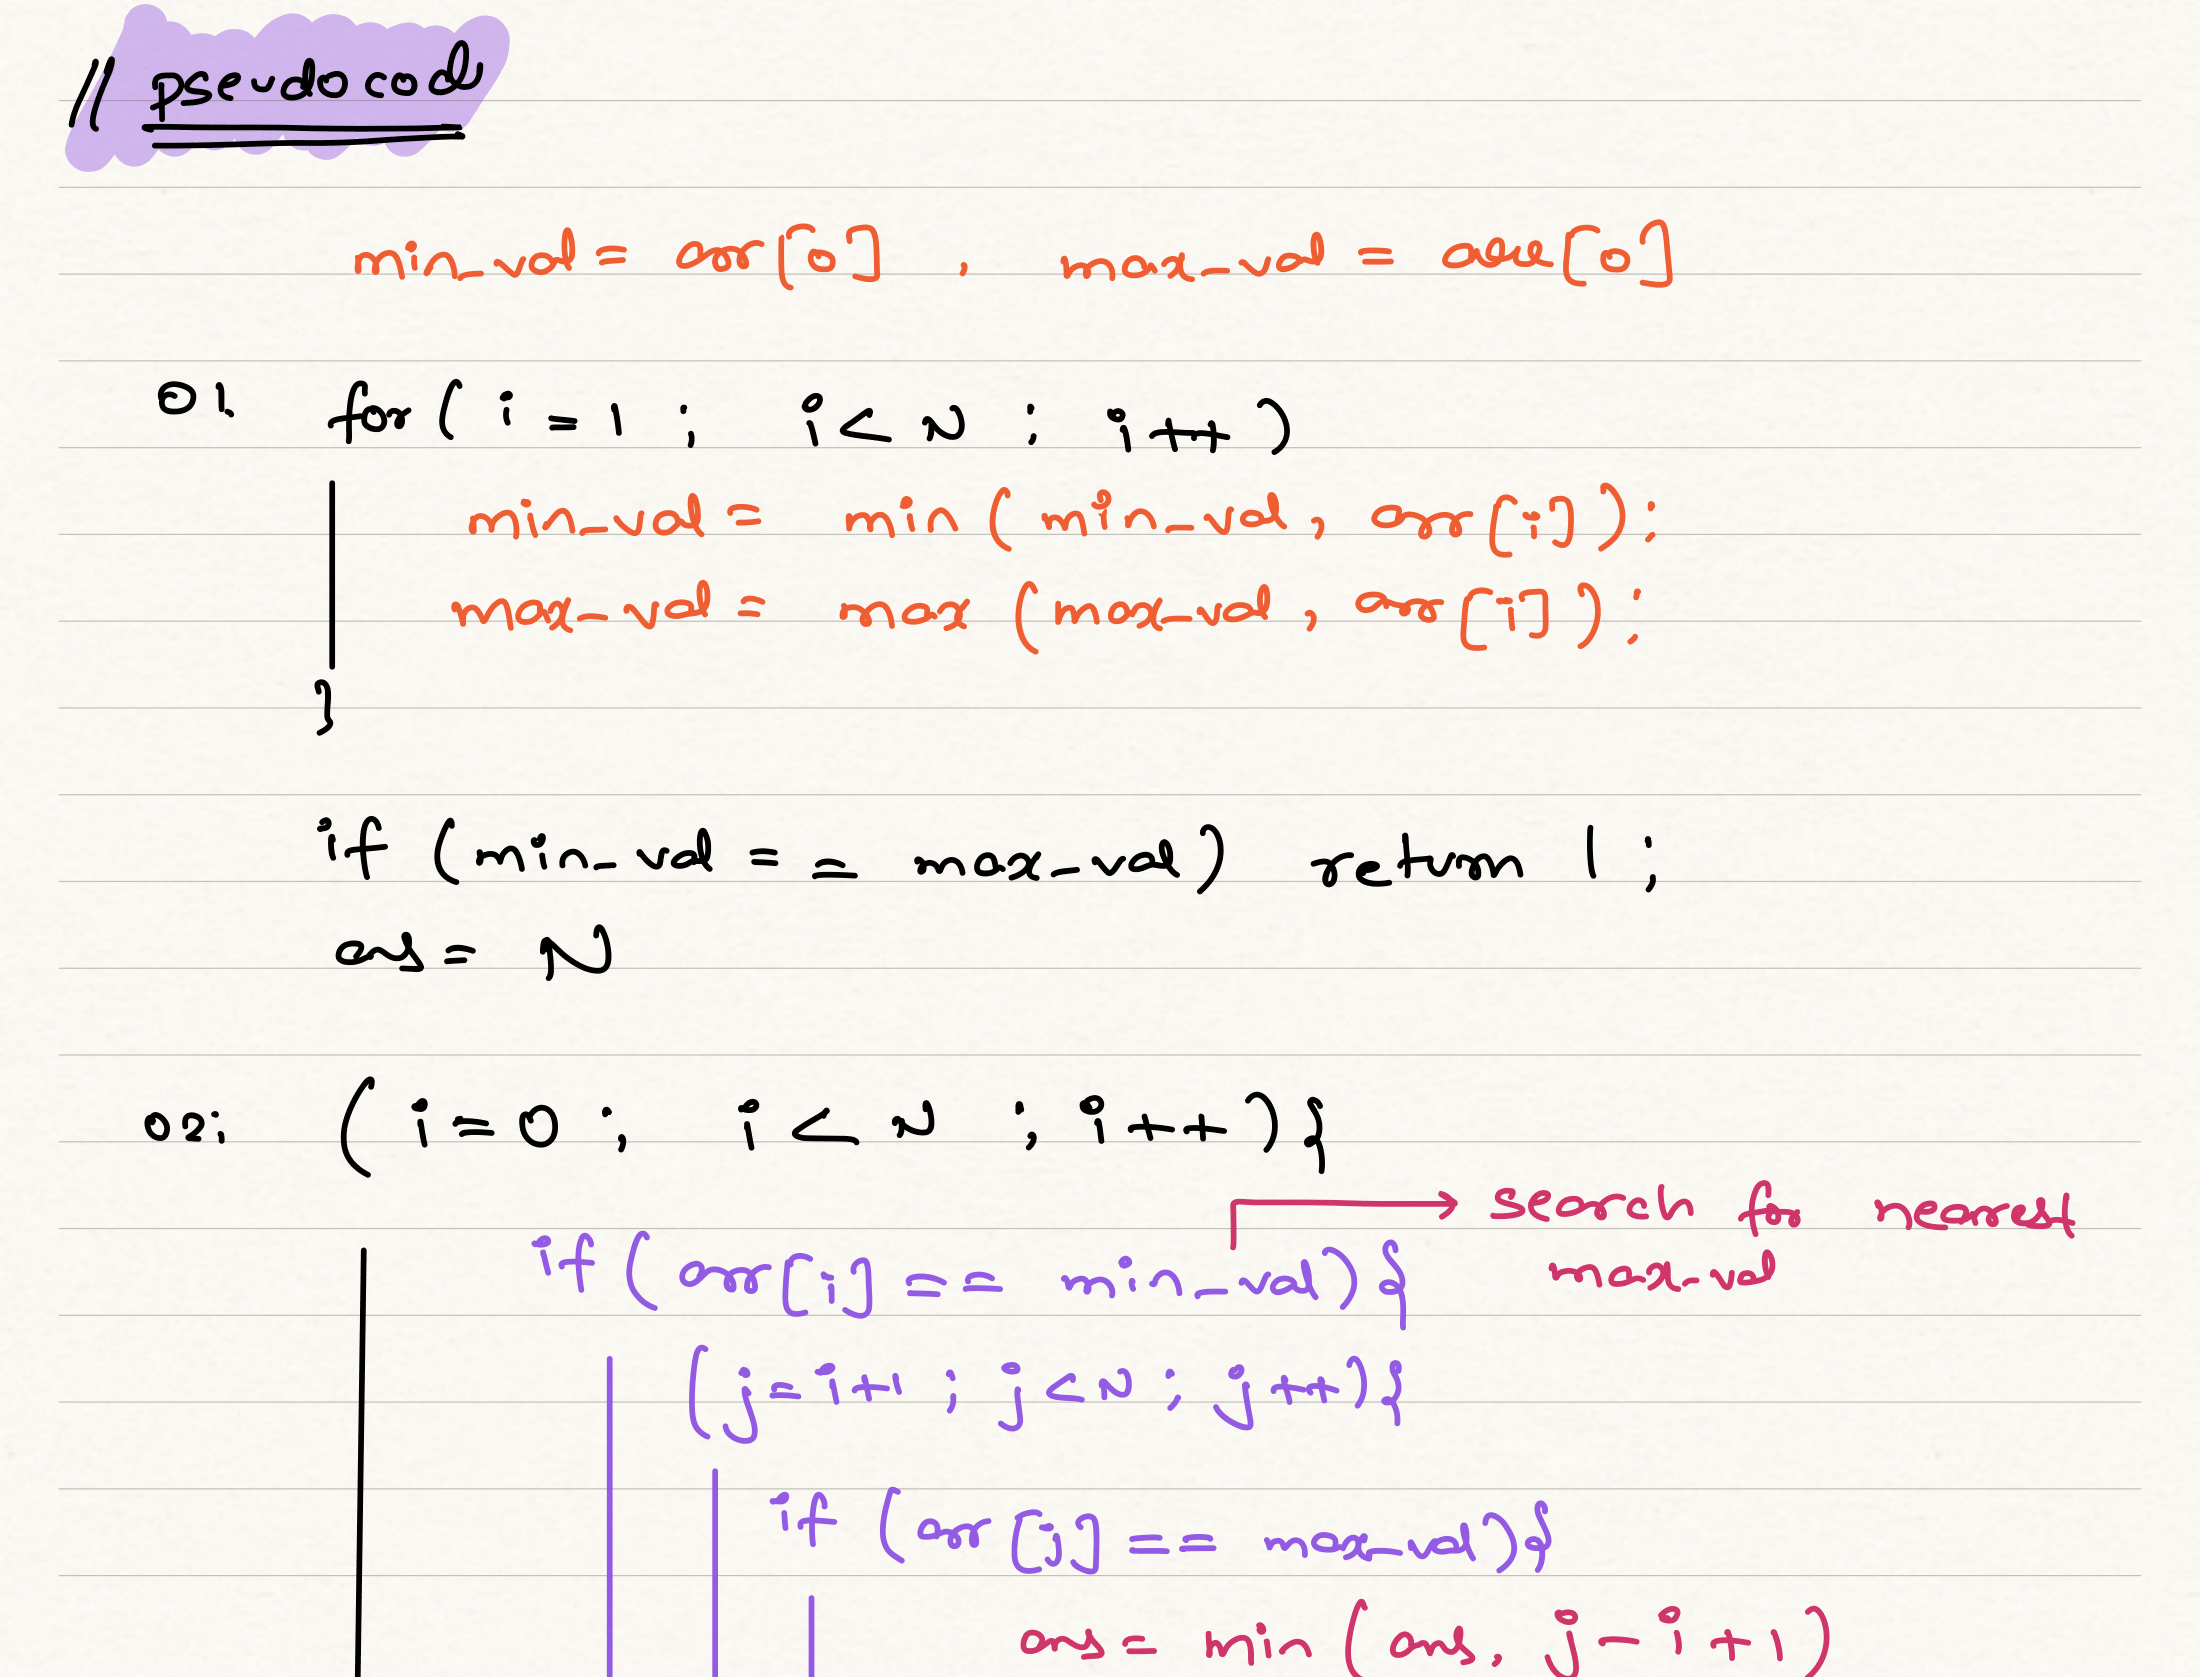 // pseudocode
min_val = arr[0] , max_val = arr[0]
01. for( i = 1 ; i < N ; i++ )
min_val = min ( min_val, arr[i]);
max_val = max (max_val, arr[i]);
}
if (min_val == max_val) return 1 ;
ans = N
02: ( i=0 ; i < N ; i++){
search for nearest
max_val
if ( arr[i] == min_val){
(j=i+1 ; j<N ; j++){
if (arr[j] == max_val){
ans = min (ans, j-i+1)